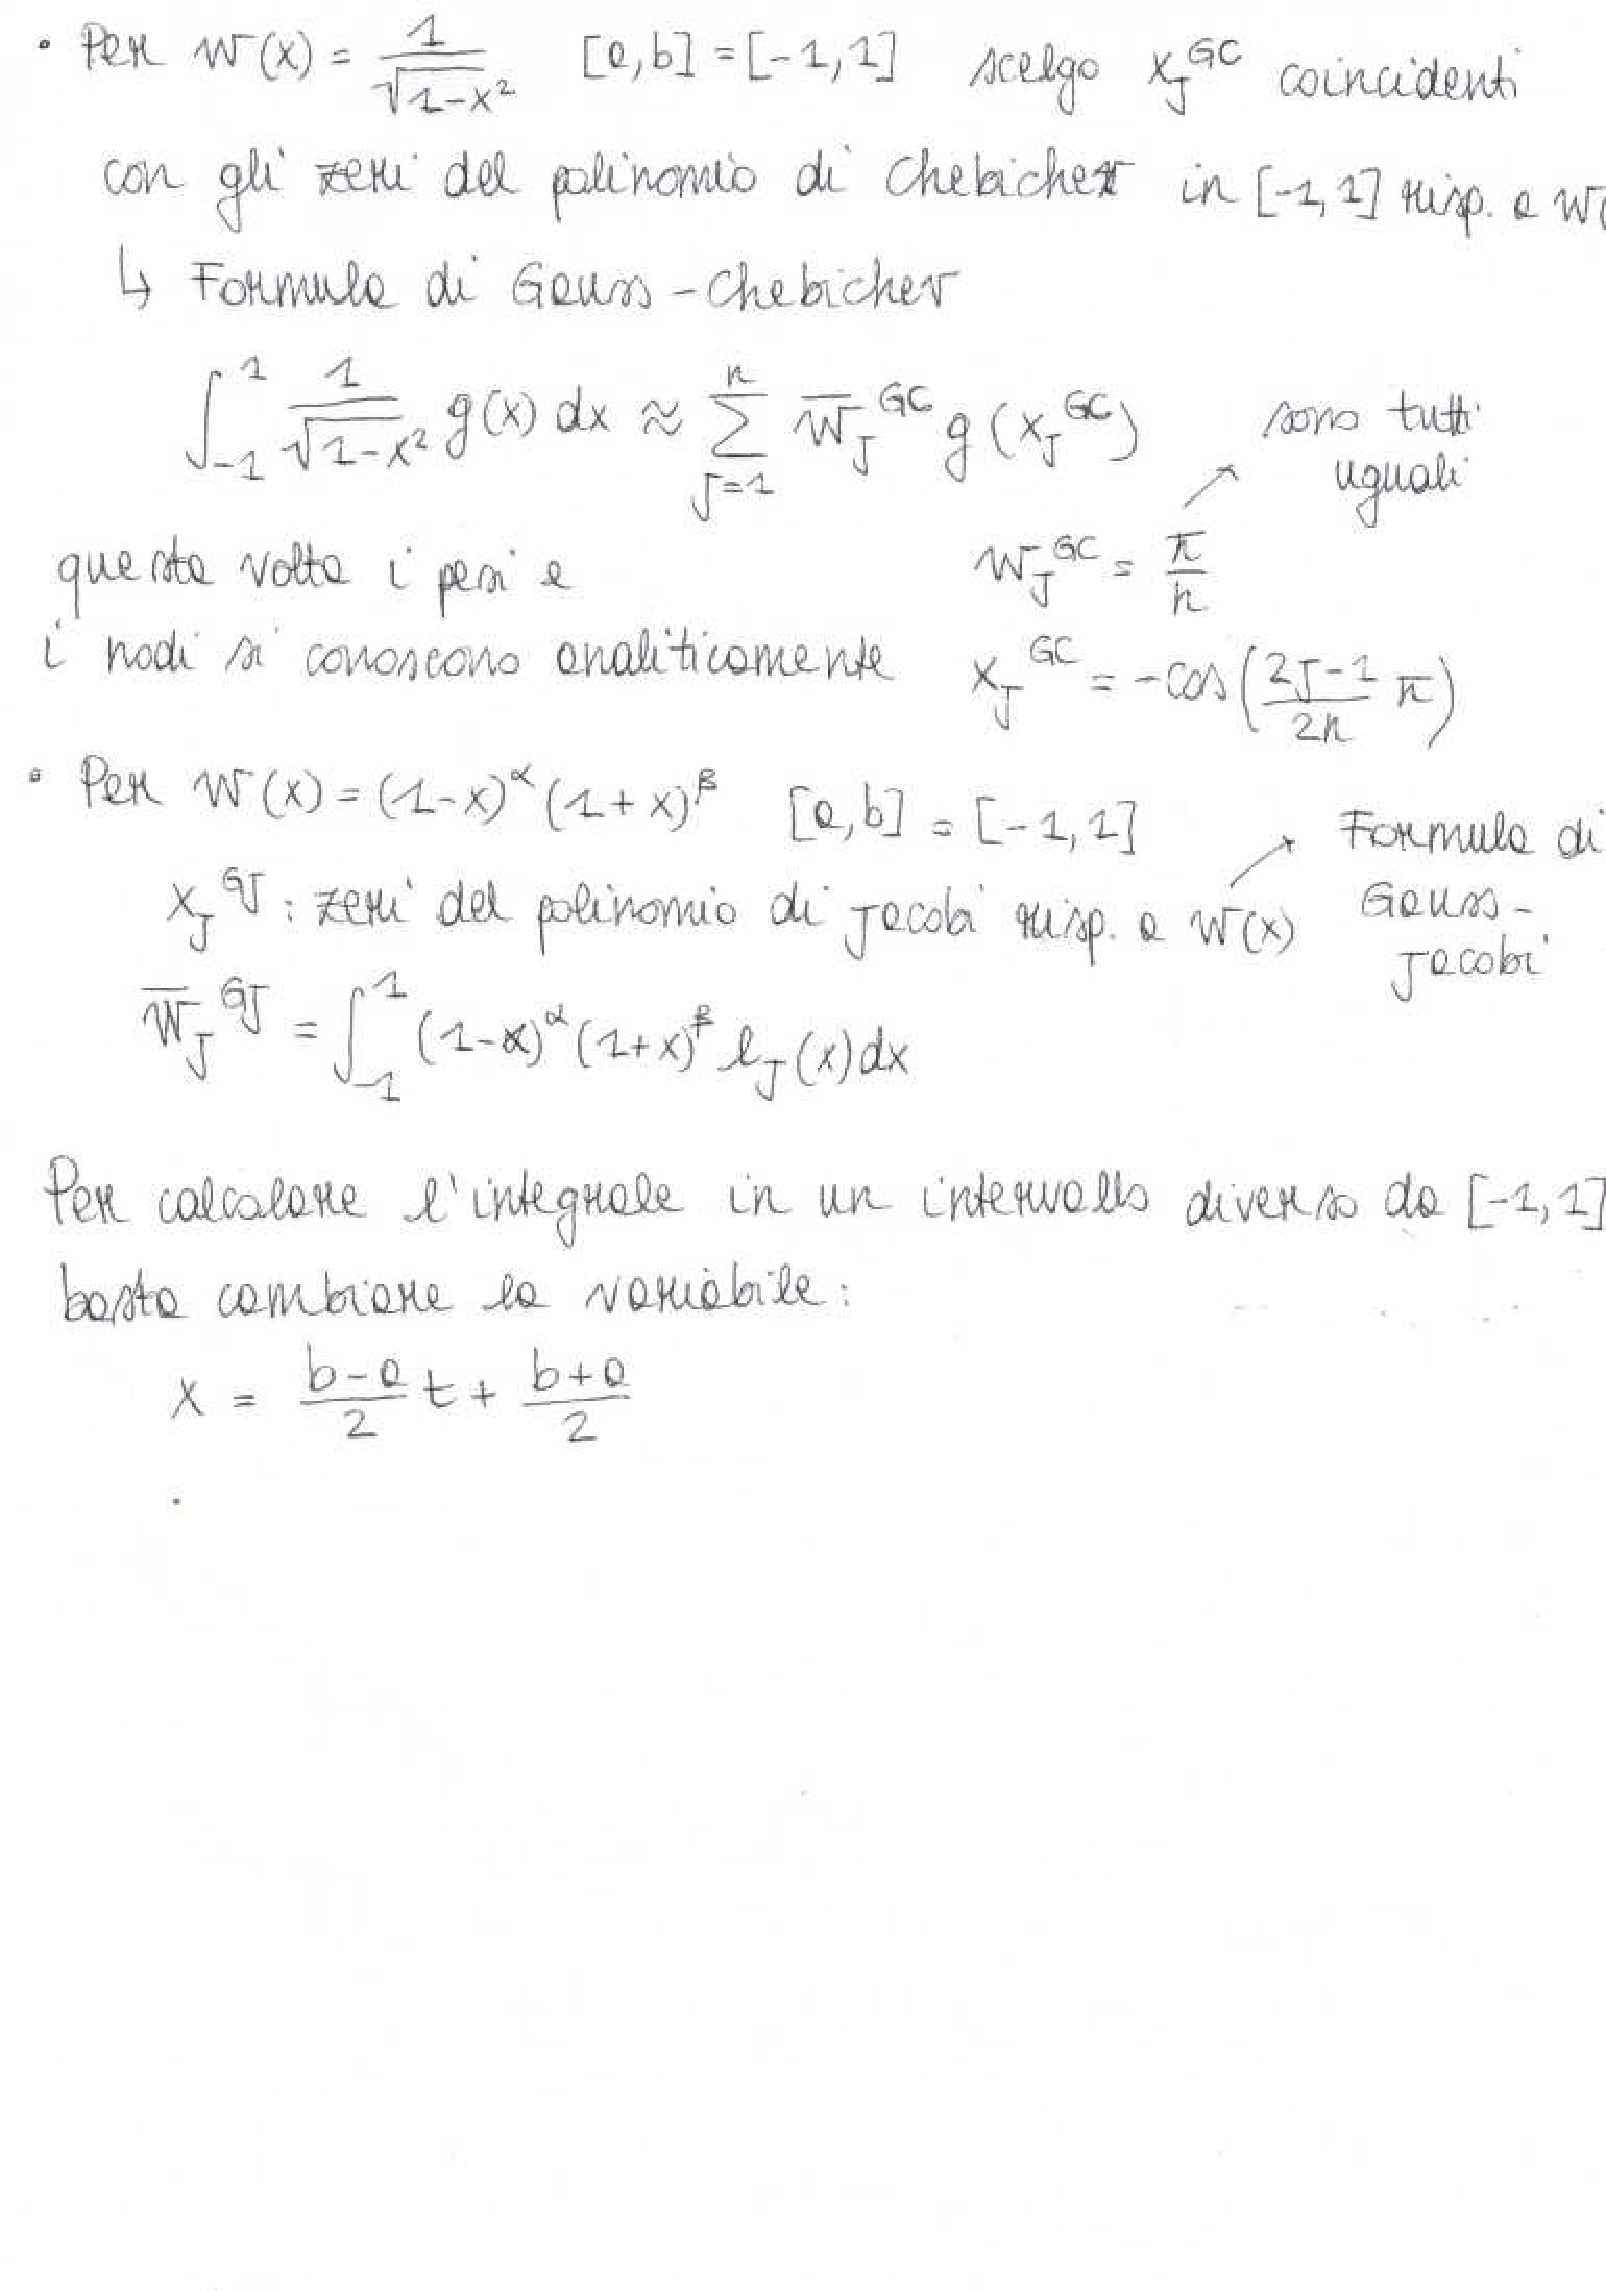 • Per w(x) = 1/√(1-x²) [a,b] = [-1,1] scelgo x_J^GC coincidenti
con gli zeri del polinomio di Chebichev in [-1,1] risp. a w(
↳ Formula di Gauss-Chebichev
∫_{-1}^{1} 1/√(1-x²) g(x) dx ≈ ∑_{J=1}^{n} w̅_J^GC g(x_J^GC)
sono tutti
uguali
↗
questa volta i pesi e w_J^GC = π/n
i nodi si conoscono analiticamente x_J^GC = -cos((2J-1)/2n π)
• Per w(x) = (1-x)^α (1+x)^β [a,b] = [-1,1]
x_J^GJ : zeri del polinomio di Jacobi risp. a w(x) ↗ Formula di
Gauss-
Jacobi
w̅_J^GJ = ∫_{-1}^{1} (1-x)^α (1+x)^β l_J(x) dx
Per calcolare l'integrale in un intervallo diverso da [-1,1]
basta cambiare la variabile:
x = (b-a)/2 t + (b+a)/2